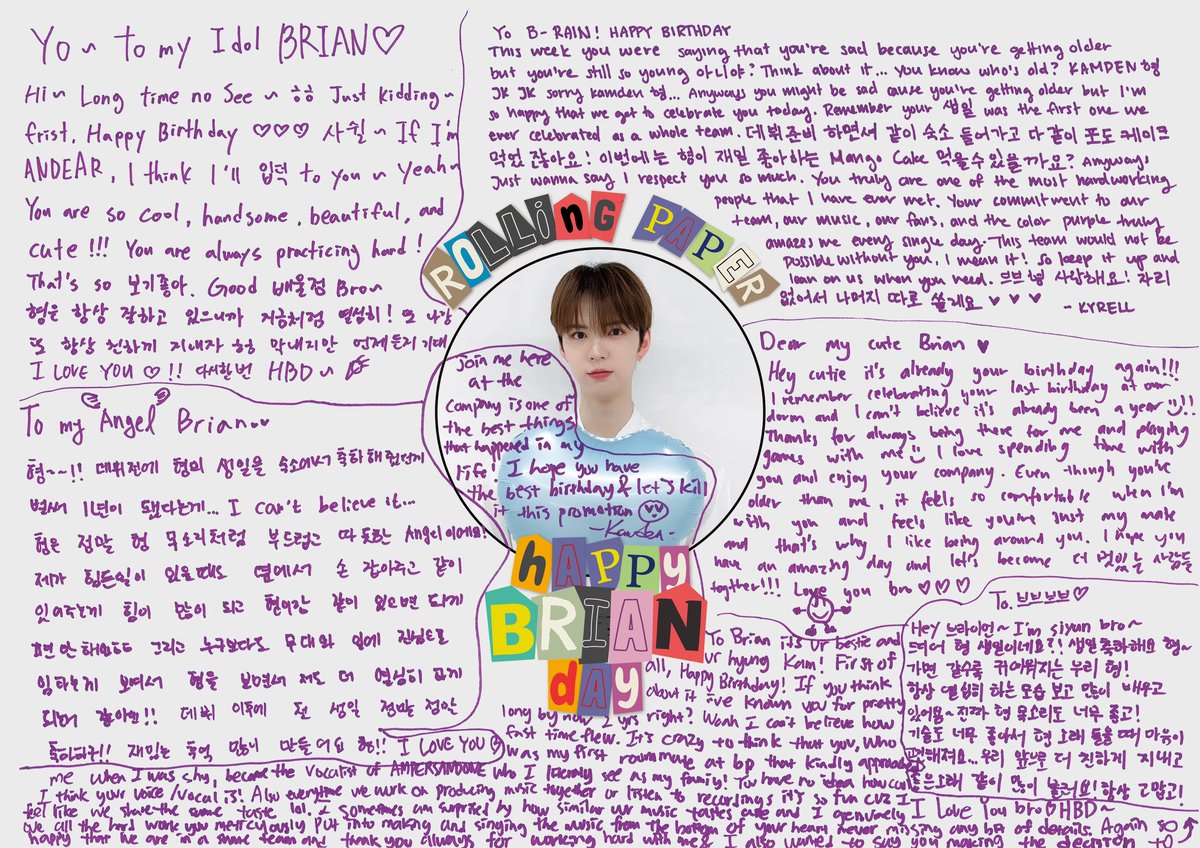 Yo~ to my Idol BRIAN♡
Hi~ Long time no See~ ㅎㅎ Just kidding~
frist, Happy Birthday ♡♡♡ 사월~ If I'm
ANDEAR, I think I'll 입덕 to you~ Yeah~
You are so cool, handsome, beautiful, and
cute!!! You are always practicing hard!
That's so 보기좋아. Good 배울점 Bro~
형은 항상 잘하고 있으니까 지금처럼 열심히! 또 나랑
또 항상 친하게 지내자 형 막내지만 언제든지 기대
I LOVE YOU ♡!! 다시한번 HBD~
To my Angel Brian~♡
형~~!! 데뷔전에 형의 생일을 숙소에서 축하해줬던게
벌써 1년이 됐다는게... I can't believe it...
형은 정말 형 목소리처럼 부드럽고 따뜻한 Angel이에요!
제가 힘든일이 있을때도 옆에서 손 잡아주고 같이
있어주는게 힘이 많이 되고
그리고 누구보다도 무대와 일에 진심으로
임하는게 보여서 형을 보면서 저도 더 열심히 하게
되어 같아요!! 데뷔 이후에 첫 생일 정말 정말
축하하구!! 재밌는 추억 많이 만들어요 형!! I LOVE YOU
Yo B-RAIN! HAPPY BIRTHDAY
This week you were saying that you're sad because you're getting older
but you're still so young 아니야? Think about it... You know who's old? KAMDEN형
JK JK sorry kamden 형... Anyways you might be sad cause you're getting older but I'm
so happy that we got to celebrate you today. Remember your 생일 was the first one we
ever celebrated as a whole team. 데뷔준비 하면서 같이 숙소 들어가고 다 같이 포도 케이크
먹었잖아요! 이번에는 형이 재일 좋아하는 Mango Cake 먹을수있을까요? Anyways
Just wanna say I respect you so much. You truly are one of the most hardworking
people that I have ever met. Your commitment to our
team, our music, our fans, and the color purple truly
amazes me every single day. This team would not be
possible without you. I mean it! so keep it up and
lean on us when you need. 브브형 사랑해요! 자리
없어서 나머지 따로 쓸게요 ♥ ♥ ♥
- KYRELL
ROLLING PAPER
Dear my cute Brian ♥
Hey cutie it's already your birthday again!!!
I remember celebrating your last birthday at our
dorm and I can't believe it's already been a year!!
Thanks for always being there for me and playing
games with me I love spending time with
you and enjoy your company. Even though you're
older than me, it feels so comfortable when I'm
with you and feels like you're just my mate
and that's why I like being around you. I hope you
have an amazing day and let's become 더 멋있는 사람들
together!!! Love you bro♡♡♡
To. 브브브브♡
Hey 브라이언~ I'm siyun bro~
드디어 형 생일이네요?! 생일축하해요 형~
가면 갈수록 귀여워지는 우리 형!
항상 열심히 하는 모습 보고 많이 배우고
있어용~ 진짜 형 목소리도 너무 좋고!
기술도 너무 좋아서 형 노래 들을 때 마음이
편해져요... 우리 앞으로 더 친하게 지내고
좋은노래 같이 많이 불러요! 항상 고맙고!
I Love You bro♡HBD~
HAPPY
BRIAN
DAY
To Brian its ur bestie and
ur hyung Kam! First of
all, Happy Birthday! If you think
about it ive known you for pretty
long by now 2 yrs right? Woah I can't believe how
fast time flew. It's crazy to think that you, who
was my first roommate at bp that kindly approached
me when I was shy, became the vocalist of AMPERSANDONE who I literally see as my family! You have no idea how cool
I think your voice/vocal is! Also everytime we work on producing music together or listen to recordings it's so fun cuz I
feel like we share the same taste lol. I sometimes am suprised by how similar our music tastes are and I genuinely
love all the hard work you meticulously put into making and singing the music from the bottom of your heart never missing any bit of details. Again so
happy that we are in a same team and thank you always for working hard with me & I also wanted to say you making the decision to
join me here
at the
company is one of
the best things
that happened in my
life! I hope you have
the best birthday & let's kill
it this promotion
- Kamden -